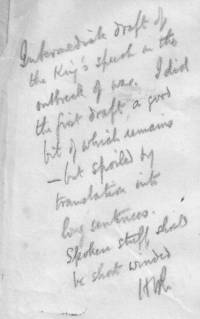 Intermediate draft of
the King's speech on the
outbreak of war. I did
the first draft, a good
bit of which remains
– but spoiled by
translation into
long sentences.
Spoken stuff should
be short winded